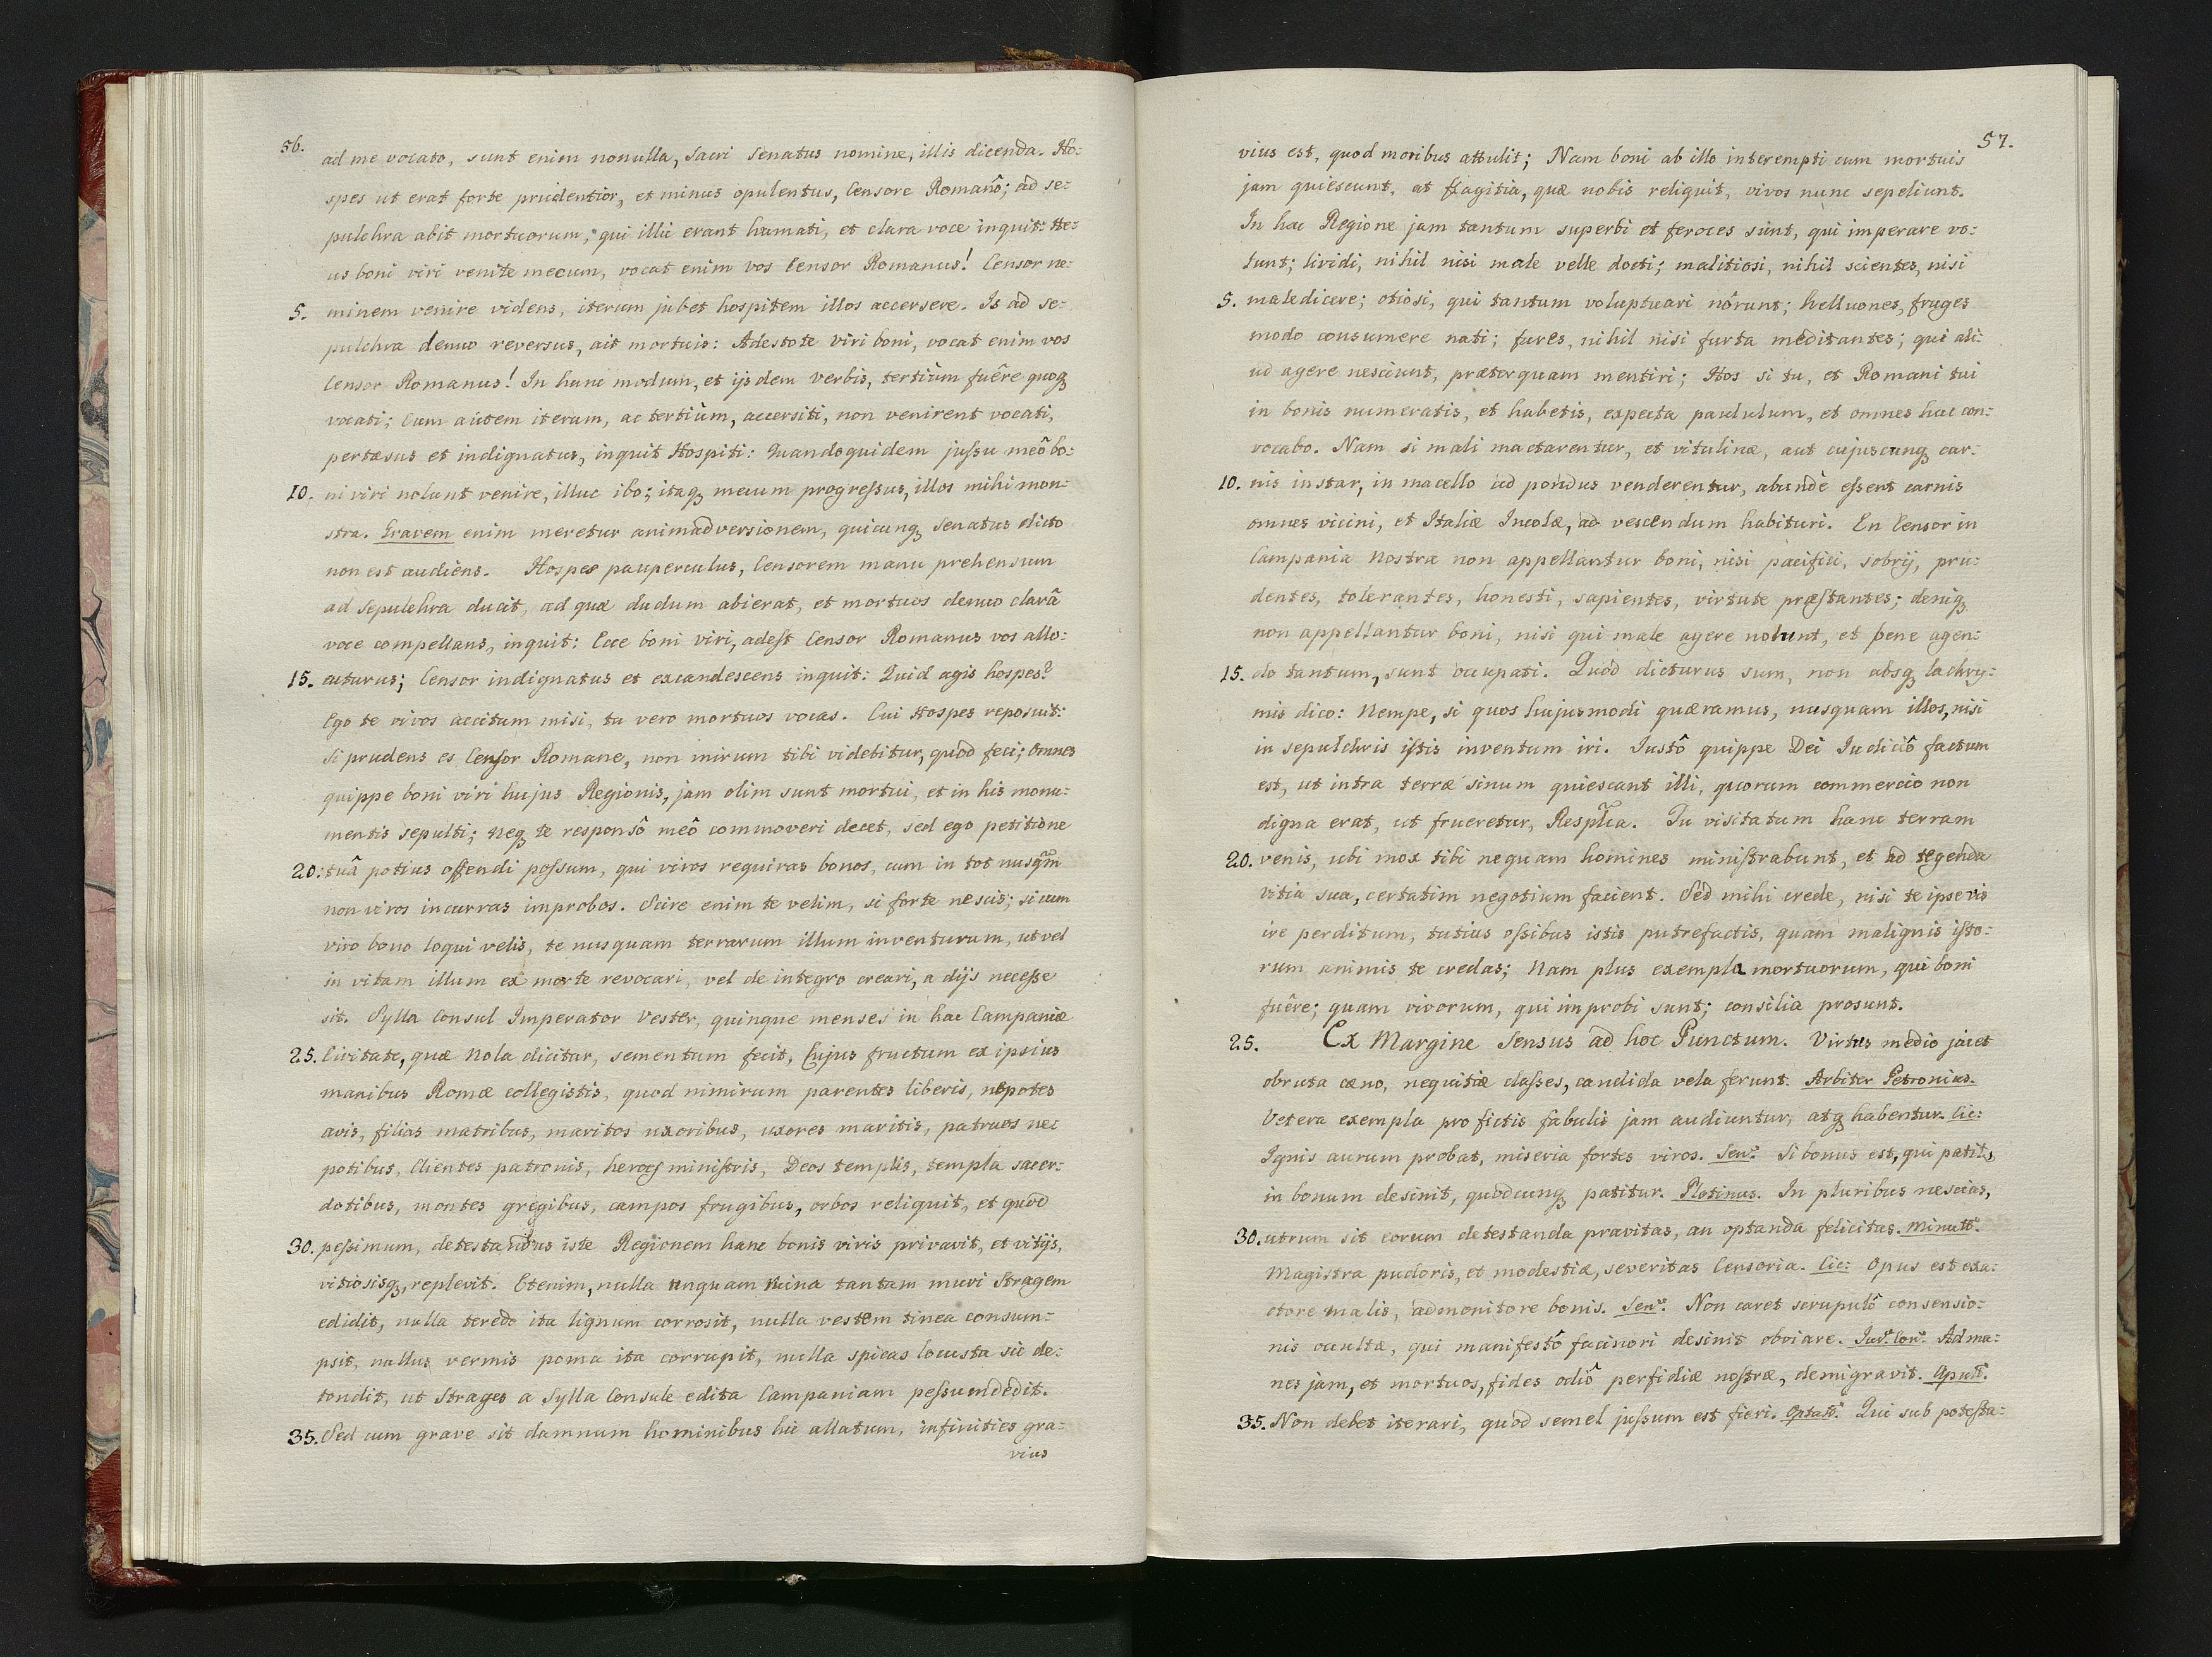 56.
ad me vocato, sunt enim nonulla, Sacri Senatus nomine, illis dicenda. Ho:
spes ut erat forte prudentior, et minus opulentus, Censore Romanô; ad se:
pulchra abit mortuorum, qui illic erant humati, et clara voce inquit: He:
us boni viri venite mecum, vocat enim vos Censor Romanus! Censor ne:
5. minem venire videns, iterum jubet hospitem illos accersere. Is ad se:
pulchra denuo reversus, ait mortuis: Adestote viri boni, vocat enim vos
Censor Romanus! In hunc modum, et ijsdem verbis, tertiùm fuêre quoq
vocati; Cum autem iterum, ac tertiùm, accersiti, non venirent vocati,
pertæsus et indignatus, inquit Hospiti: Quandoquidem jussu meô bo:
10. ni viri nolunt venire, illuc ibo; itaq mecum progressus, illos mihi mon:
stra. Gravem enim meretur animadversionem, quicunq Senatus dicto
non est audiens. Hospes pauperculus, Censorem manu prehensum
ad Sepulchra ducit, ad quæ dudum abierat, et mortuos denuo clarâ
voce compellans, inquit: Ecce boni viri, adest Censor Romanus vos allo:
15. cuturus; Censor indignatus et excandescens inquit: Quid agis hospes?
Ego te vivos accitum misi, tu vero mortuos vocas. Cui Hospes reposuit:
Si prudens es Censor Romane, non mirum tibi videbitur, quod feci; omnes
quippe boni viri hujus Regionis, jam olim sunt mortui, et in his monu:
mentis sepulti; neq te responsô meô commoveri decet, sed ego petitione
20. tuâ potius offendi possum, qui viros requiras bonos, cum in tot nusqm̃
non viros incurras improbos. Scire enim te velim, si forte nescis; si cum
viro bono loqui velis, te nusquam terrarum illum inventurum, ut vel
in vitam illum ex morte revocari, vel de integro creari, a dijs necesse
sit. Sylla Consul Imperator Vester, quinque menses in hac Campaniæ
25. Civitate, quæ Nola dicitur, sementum fecit, Cujus fructum ex ipsius
manibus Romæ collegistis, quod nimirum parentes liberis, nepotes
avis, filias matribus, maritos uxoribus, uxores maritis, patruos ne:
potibus, Clientes patronis, heroes ministris, Deos templis, templa sacer:
dotibus, montes gregibus, campos frugibus, orbos reliquit, et quod
30. pessimum, detestandus iste Regionem hanc bonis viris privavit, et vitijs,
vitiosisq, replevit. Etenim, nulla unquam ruina tantam muri Stragem
edidit, nulla teredo ita lignum corrosit, nulla vestem tinea consum:
psit, nullus vermis poma ita corrupit, nulla spicas locusta sic de:
tondit, ut Strages a Sylla Consule edita Campaniam pessumdedit.
35. Sed cum grave sit damnum hominibus hic allatum, infinities gra:
vius
57.
vius est, quod moribus attulit; Nam boni ab illo interempti cum mortuis
jam quiescunt, at flagitia, quæ nobis reliquit, vivos nunc sepeliunt.
In hac Regione jam tantum superbi et feroces sunt, qui imperare vo:
lunt; lividi, nihil nisi male velle docti; malitiosi, nihil scientes, nisi
5. maledicere; otiosi, qui tantum voluptuari nôrunt; helluones, fruges
modo consumere nati; fures, nihil nisi furta meditantes; qui ali:
ud agere nesciunt, præterquam mentiri; Hos si tu, et Romani tui
in bonis numeratis, et habetis, expecta paululum, et omnes huc con:
vocabo. Nam si mali mactarentur, et vitulinæ, aut cujuscunq car:
10. nis instar, in macello ad pondus venderentur, abundè essent carnis
omnes vicini, et Italiæ Incolæ, ad vescendum habituri. En Censor in
Campania Nostra non appellantur boni, nisi pacifici, sobrij, pru:
dentes, tolerantes, honesti, sapientes, virtute præstantes; deniq
non appellantur boni, nisi qui male agere nolunt, et bene agen:
15. do tantum, sunt occupati. Quod dicturus sum, non absq lachry:
mis dico: Nempe, si quos hujusmodi quæramus, nusquam illos, nisi
in sepulchris istis inventum iri. Justô quippe Dei Judiciô factum
est, ut intra terræ sinum quiescant illi, quorum commercio non
digna erat, ut frueretur, Respl̃ca. Tu visitatum hanc terram
20. venis, ubi mox tibi nequam homines ministrabunt, et ad tegenda
vitia sua, certatim negotium facient. Sed mihi crede, nisi te ipse vis
ire perditum, tutius ossibus istis putrefactis, quam malignis isto:
rum animis te credas; Nam plus exempla mortuorum, qui boni
fuêre; quam vivorum, qui improbi sunt; consilia prosunt.
25. Ex Margine Sensus ad hoc Punctum. Virtus medio jacet
obruta cæno, nequitiæ classes, candida vela ferunt. Arbiter Petronius.
Vetera exempla pro fictis fabulis jam audiuntur, atq habentur. Cic:
Ignis aurum probat, miseria fortes viros. Sen: Si bonus est, qui patit,
in bonum desinit, quodcunq patitur. Plotinus. In pluribus nescias,
30. utrum sit eorum detestanda pravitas, an optanda felicitas. Minutt:
Magistra pudoris, et modestiæ, severitas Censoria. Cic: Opus est exa:
ctore malis, admonitore bonis. Sen: Non caret scrupulô consensio:
nis occultæ, qui manifestô facinori desinit obviare. Iur. Con: Ad ma:
nes jam, et mortuos, fides odiô perfidiæ nostræ, demigravit. Apul:
35. Non debet iterari, quod semel jussum est fieri. Optatt: Qui sub potesta: